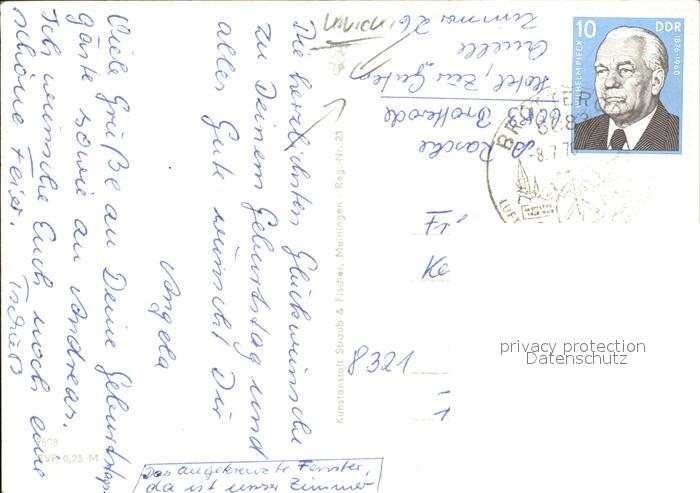 Die herzlichsten Glückwünsche
zu Deinem Geburtstag und
alles Gute wünscht Dir
Angela
Viele Grüße an Deine Geburtstags-
gäste sowie an Andreas.
Ich wünsche Euch noch eine
schöne Feier.
Das angekreuzte Fenster,
da ist unser Zimmer
EVP 0,25 M
Kunstanstalt Straub & Fischer, Meiningen Reg.-Nr. 23
Rasche
6083 Brotterode
Hotel „Zur Guten
Quelle
Zimmer 26
10
DDR
WILHELM PIECK
1876-1960
-8.7.7
8321
privacy protection
Datenschutz